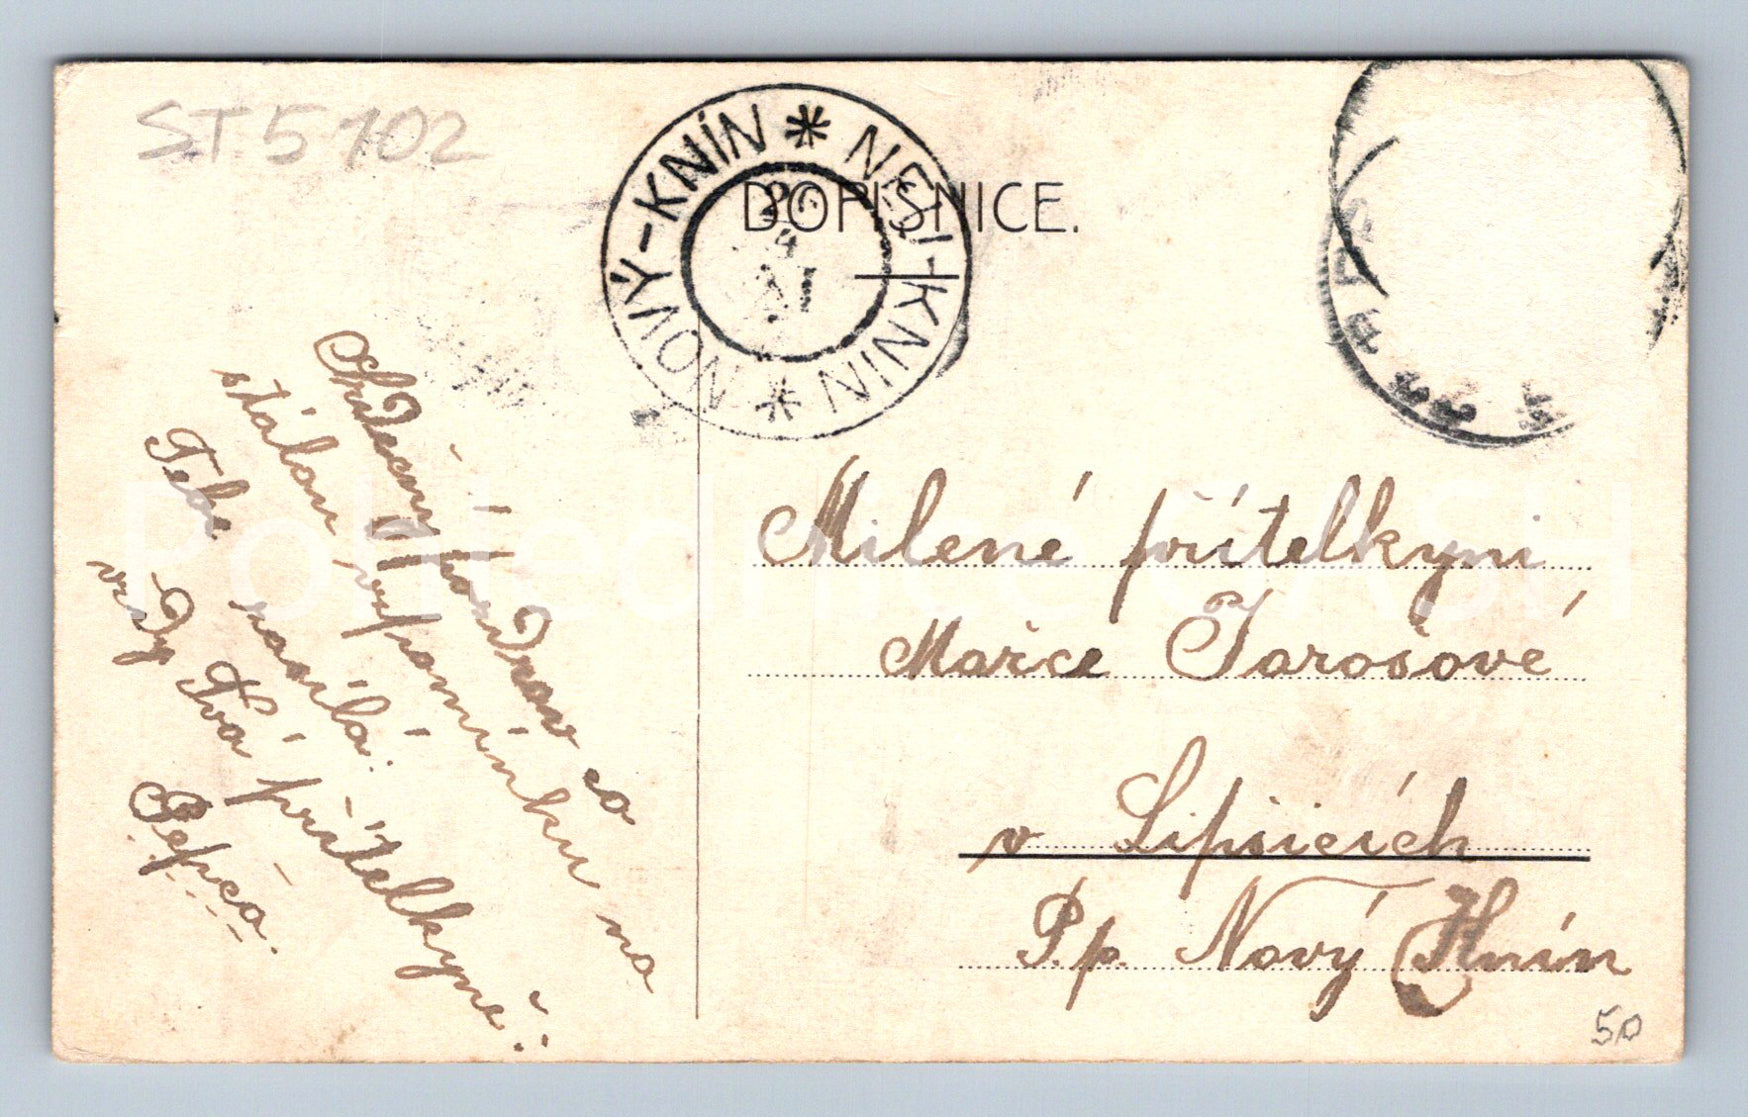 ST 5 102
DOPISNICE.
NOVÝ-KNÍN * NEU-KNIN * NOVÝ
Srdečný pozdrav co
stálou vzpomínku na
Tebe zasílá:
vždy Tvá přítelkyně:
Pepča.
Milené přítelkyni
Mařce Jarošové
v Lipšicích
P.p. Nový Knín
50